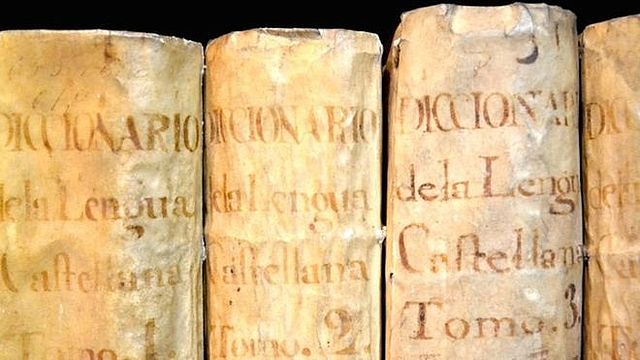 DICCIONARIO
de la Lengua
Castellana
Tomo. 1.
DICCIONARIO
de la Lengua
Castellana
Tomo. 2.
DICCIONARI
de la Lengu
Castellana
Tomo. 3.
DIC
de la
Ca